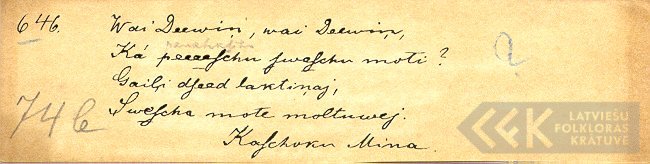 646.
Wai Deewiņ, wai Deewiņ,
Kà peeeeſchu ſweſchu moti?
Gaiļi dſeed laktiņaj,
Sweſcha mote moltuwej.
Kaſchoku Mina.
746
LATVIEŠU
FOLKLORAS
KRĀTUVE